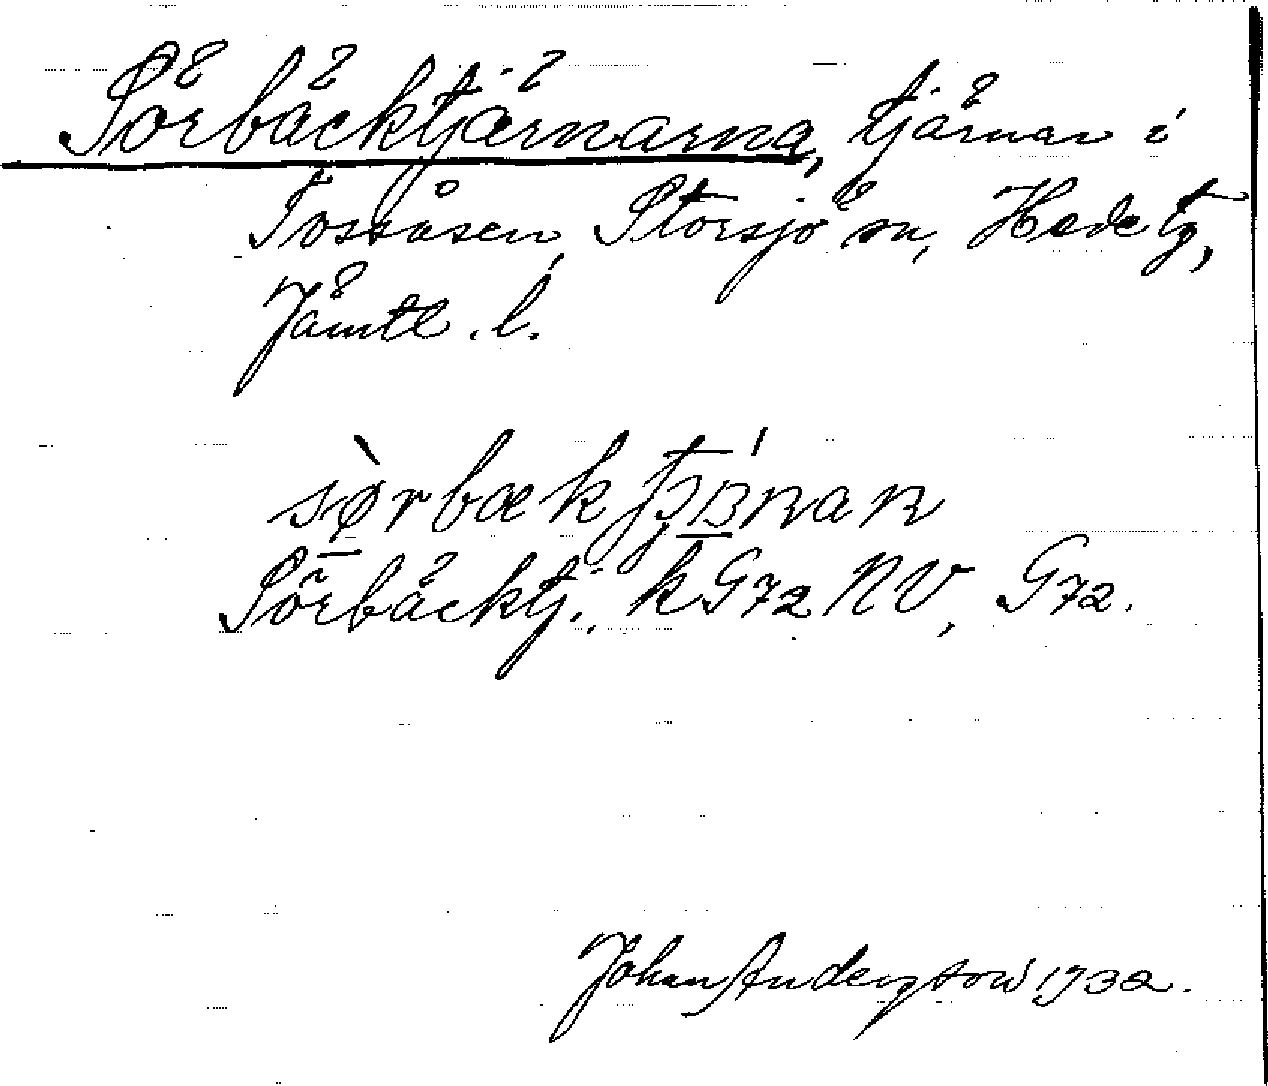 Sörbäcktjärnarna, tjärnar i
Tossåsen, Storsjö sn, Hede tg,
Jämtl. l.
Sörbäcktj.: k G72 NV, G72.
Johan Andersson 1932.